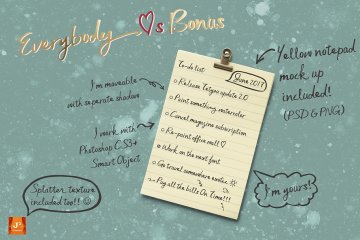 Everybody ♡s Bonus
To-do list:
June 2017
Release Tatyna update 2.0
Paint something watercolor
Cancel magazine subscription
Re-paint office wall ♡
Work on the next font
Go travel somewhere exotic
Pay all the bills On Time!!!
I'm moveable
with seperate shadow
I work with
Photoshop CS3+
Smart Object
Splatter texture
included too!! ☺
Yellow notepad
mock up
included!
(PSD & PNG)
I'm yours!